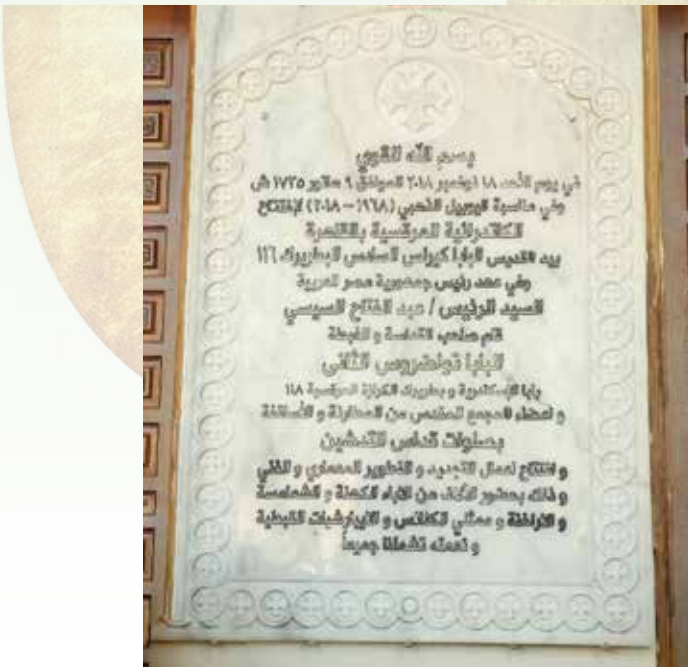 بسم الله القوي
في يوم الأحد ١٨ نوفمبر ٢٠١٨ الموافق ٩ هاتور ١٧٣٥ ش
وفي مناسبة اليوبيل الذهبي (١٩٦٨ – ٢٠١٨) لإفتتاح
الكاتدرائية المرقسية بالقاهرة
بيد القديس البابا كيرلس السادس البطريرك ١١٦
وفي عهد رئيس جمهورية مصر العربية
السيد الرئيس / عبد الفتاح السيسي
قام صاحب القداسة و الغبطة
البابا تواضروس الثانى
بابا الإسكندرية و بطريرك الكرازة المرقسية ١١٨
و أعضاء المجمع المقدس من المطارنة و الأساقفة
بصلوات قداس التدشين
و افتتاح أعمال التجديد و التطوير المعماري و الفني
و ذلك بحضور الآلاف من الآباء الكهنة و الشمامسة
و الأراخنة و ممثلي الكنائس و الايبارشيات القبطية
و نعمته تشملنا جميعاً